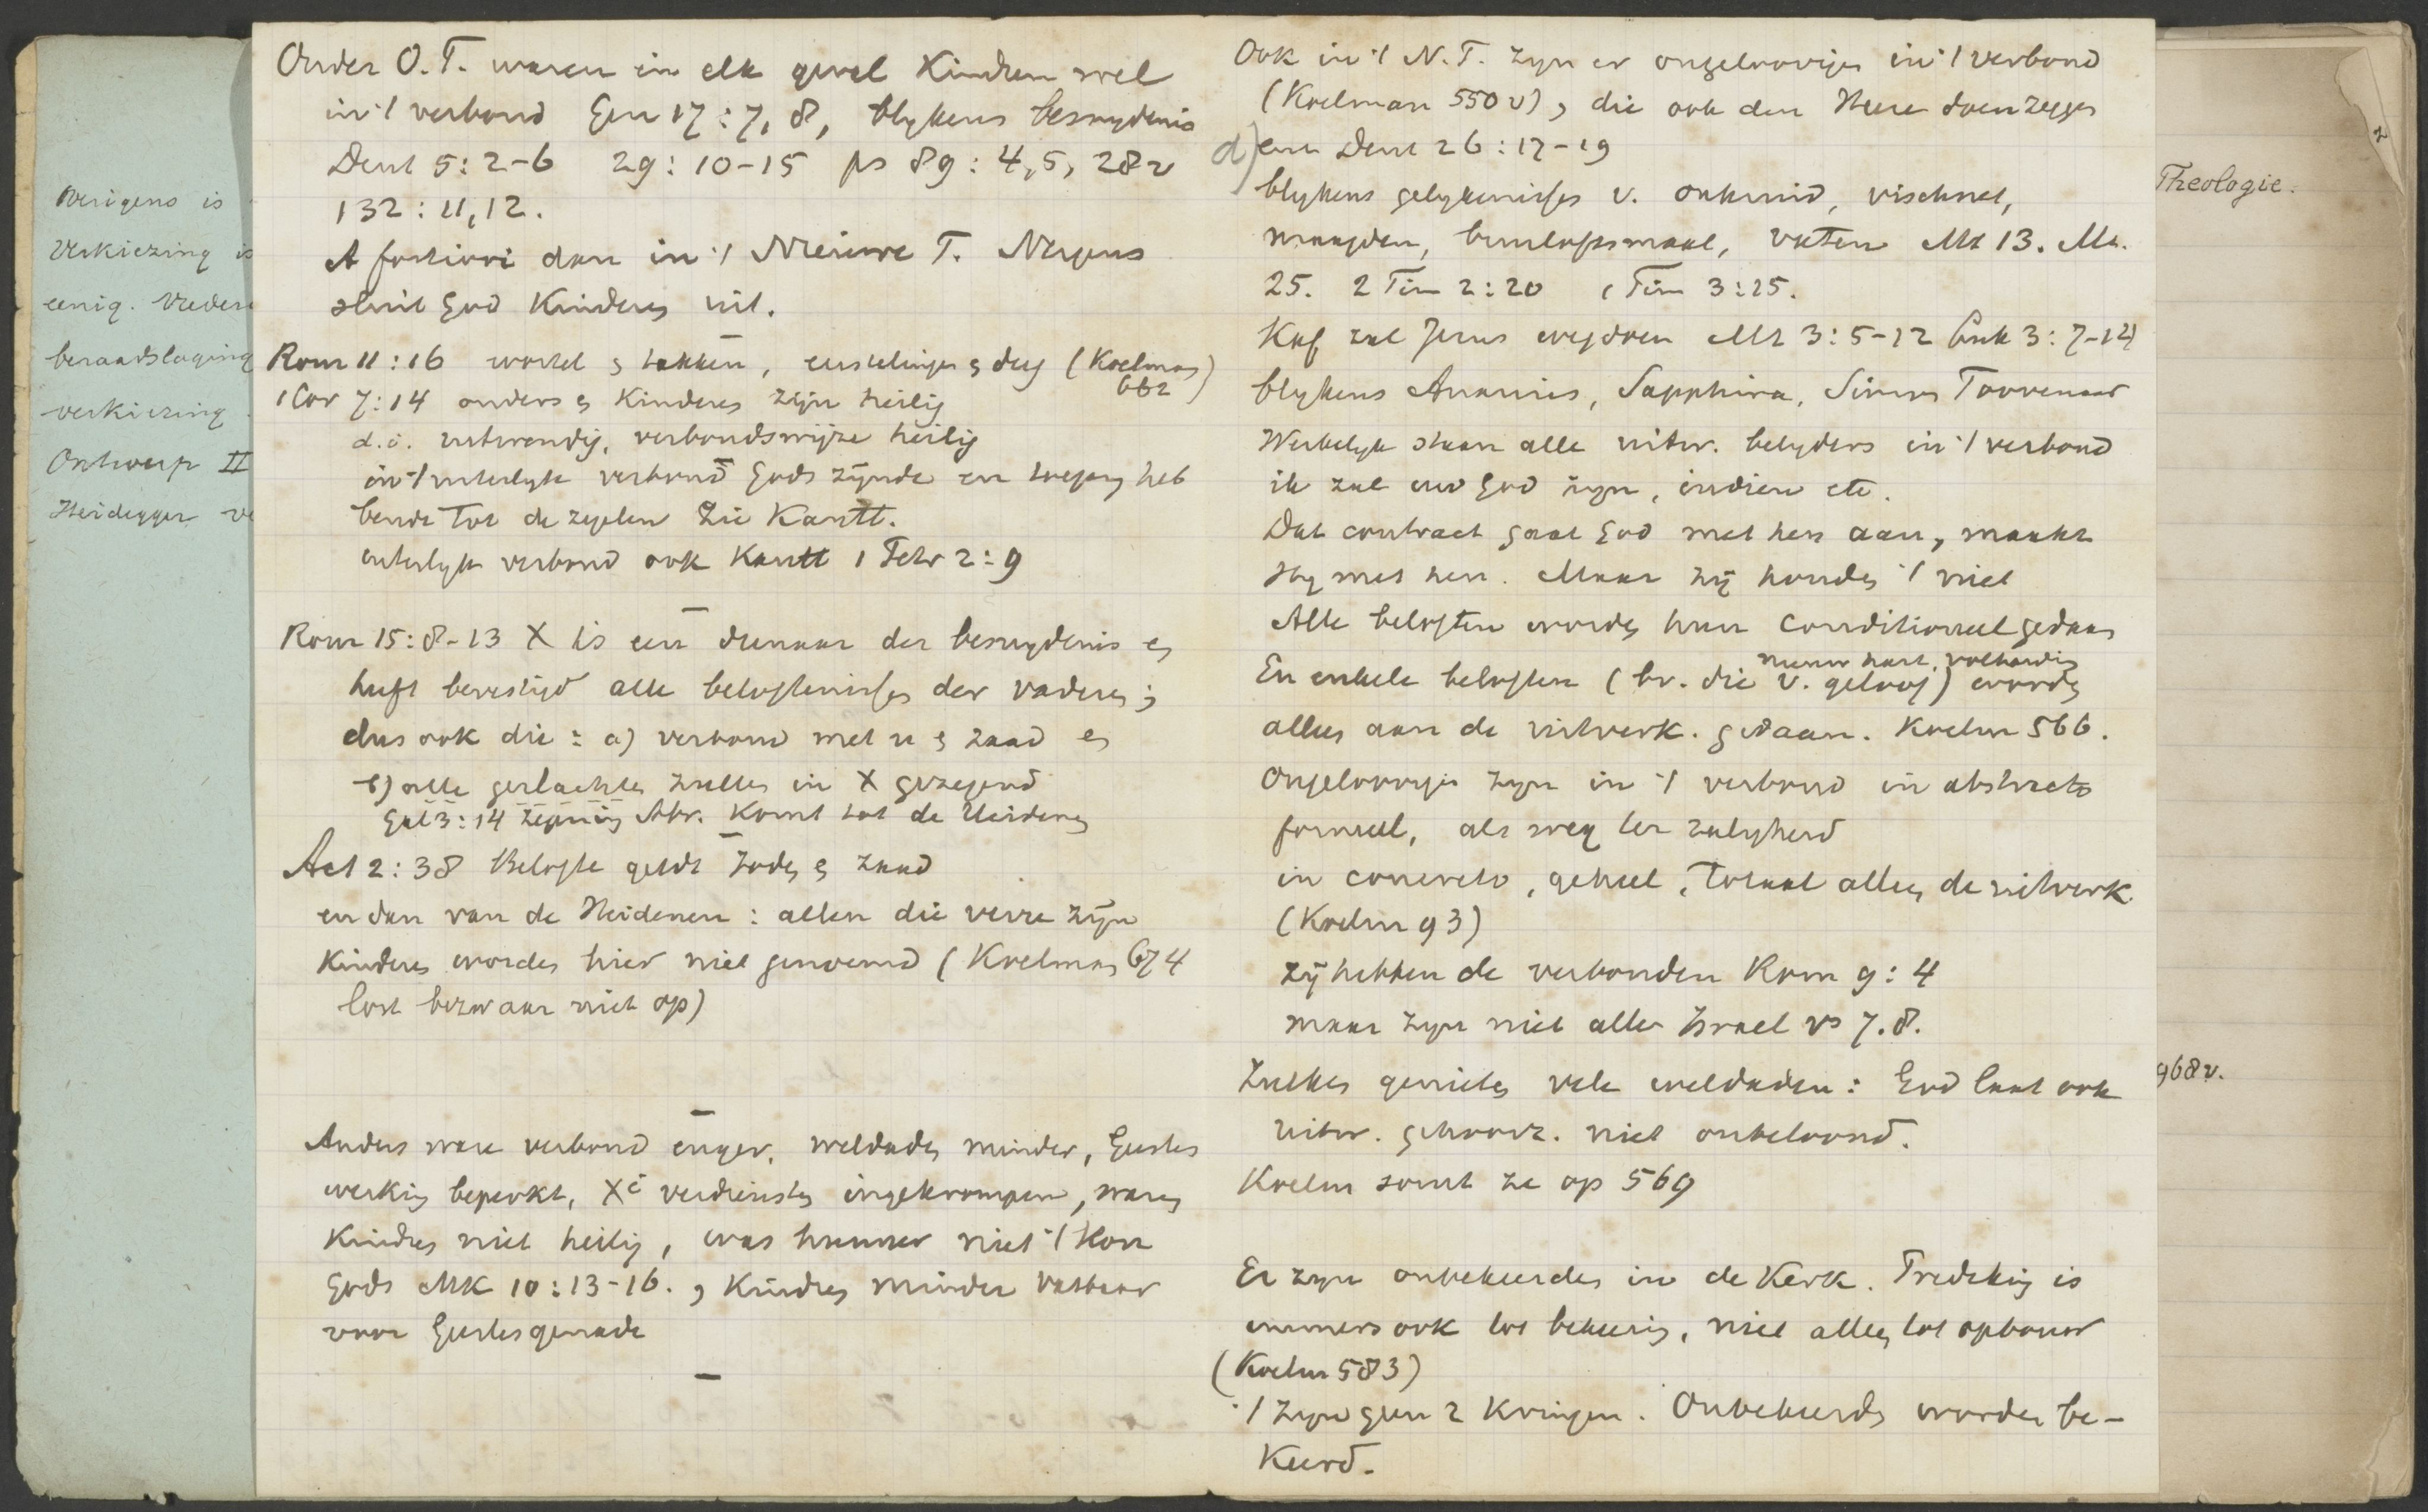 Overigens is
Verkiezing is
eenig. Vredera
beraadslaging
verkiezing
Ontwerp II
Heidegger ve
Onder O.T. waren in elk geval Kinderen wel
in 't verbond Gen 17:7, 8, blykens besnydenis
Deut 5:2-6 29:10-15 ps 89:4,5, 28v
132:11,12.
A fortiori dan in 't Nieuwe T. Nergens
sluit God Kinderen uit.
Rom 11:16 wortel en takken, eerstelingen en deeg (Koelman
662)
1 Cor 7:14 anders en Kinderen zijn heilig
d.i. uitwendig, verbondswijze heilig
in 't uiterlyk verbond Gods zijnde en toegang heb
bende tot de zegelen Zie Kantt.
uiterlyk verbond ook Kantt 1 Petr 2:9
Rom 15:8-13 X is een dienaar der besnydenis en
heeft bevestigd alle beloftenissen der vaderen;
dus ook die: a) verbond met u en zaad en
b) alle geslachten zullen in X gezegend
Gal 3:14 zegening Abr. Komt tot de Heidenen
Act 2:38 Belofte geldt Joden en zaad
en dan van de Heidenen: allen die verre zijn
Kinderen worden hier niet genoemd (Koelman 674
lost bezwaar niet op)
Anders ware verbond enger, weldaden minder, Geestes
werking beperkt, Xi verdiensten ingekrompen, waren
Kindren niet heilig, was hunner niet 't Kon
Gods Mk 10:13-16., Kindren minder vatbaar
voor Geestesgenade
Ook in 't N.T. zyn er ongeloovigen in 't verbond
(Koelman 550v), die ook den Heere doen zeggen
d) enz Deut 26:17-19
blykens gelykenissen v. onkruid, vischnet,
maagden, bruiloftsmaal, vaten Mt 13. Mt.
25. 2 Tim 2:20 1 Tim 3:15.
Kaf zal Jezus wegdoen Mt 3:5-12 Luk 3:7-14
blykens Ananias, Sapphira, Simon Toovenaar
Werkelyk staan alle uitw. belyders in 't verbond
ik zal uw God zyn, indien etc.
Dat contract gaat God met hen aan, maakt
Hy met hen. Maar zij houden 't niet
Alle beloften worden hun conditioneel gedaan
nieuw hart, volharding
En enkele beloften (bv. die v. geloof) worden
alleen aan de uitverk. gedaan. Koelm 566.
Ongeloovigen zyn in 't verbond in abstracto
formeel, als weg ter zaligheid
in concreto, geheel, totaal alleen de uitverk.
(Koelm 93)
zij hebben de verbonden Rom 9:4
maar zyn niet allen Israel vs 7.8.
Zulken genieten vele weldaden: God laat ook
uitw. gehoorz. niet onbeloond.
Koelm somt ze op 569
Er zyn onbekeerden in de Kerk. Prediking is
immers ook tot bekeering, niet alleen tot opbouw
(Koelm 583)
't zyn geen 2 Kringen. Onbekeerden worden be-
Keerd.
2
Theologie.
968v.